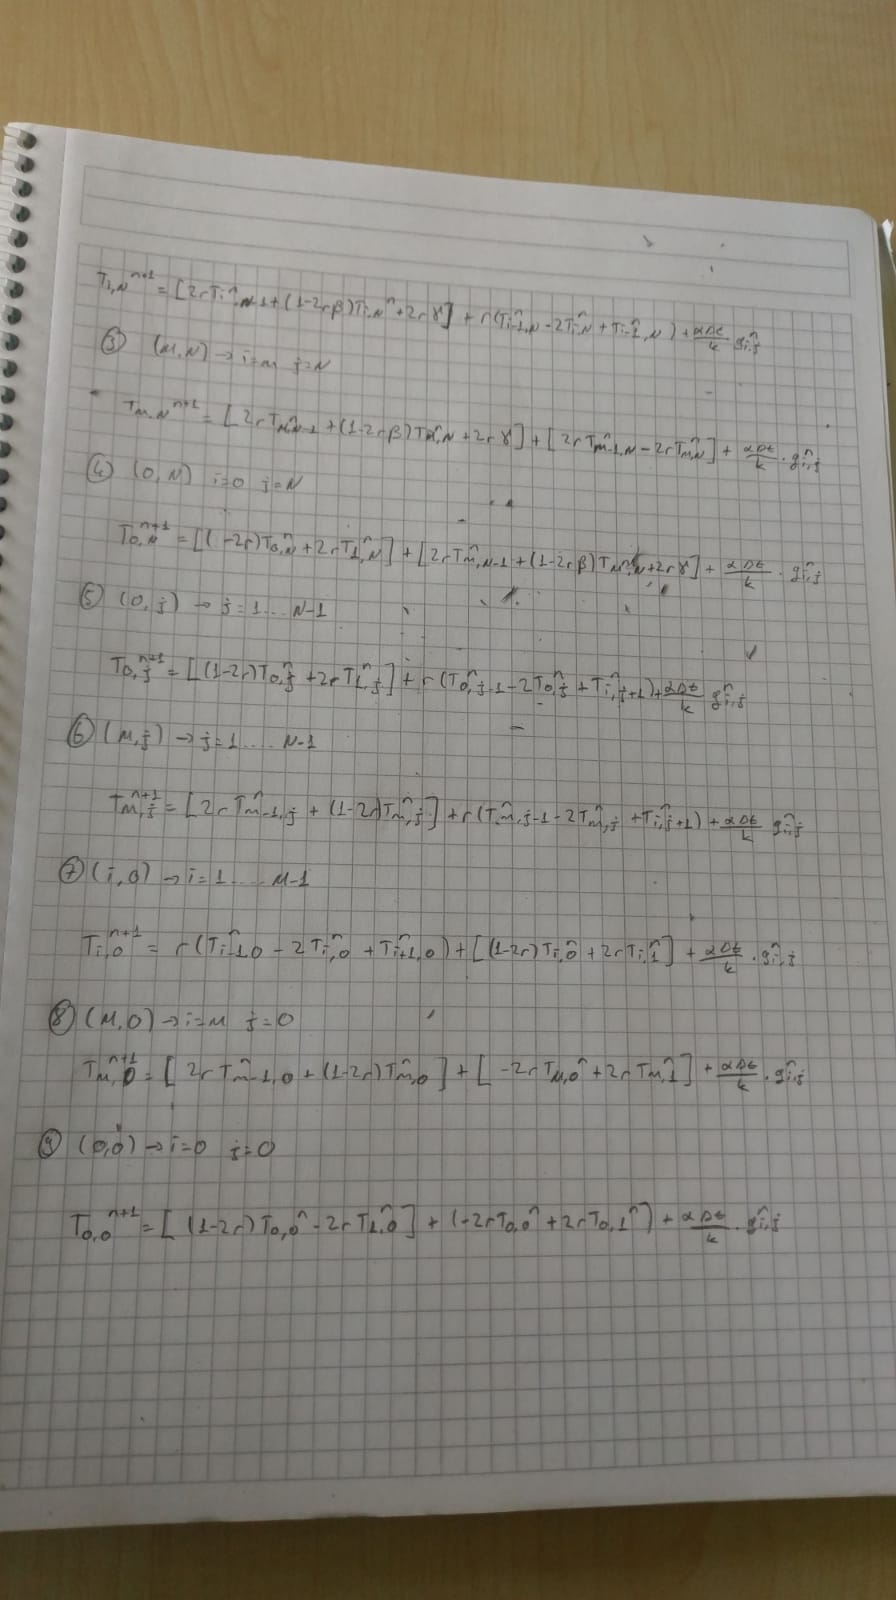 T_{i,N}^{n+1} = [2rT_{i,N-1}^n + (1-2rβ)T_{i,N}^n + 2rγ] + r(T_{i-1,N}^n - 2T_{i,N}^n + T_{i-1,N}^n) + αΔt/k g_{i,j}^n
③ (M,N) → i=M j=N
T_{M,N}^{n+1} = [2rT_{M,N-1}^n + (1-2rβ)T_{M,N}^n + 2rγ] + [2rT_{M-1,N}^n - 2rT_{M,N}^n] + αΔt/k · g_{i,j}^n
④ (0,N) i=0 j=N
T_{0,N}^{n+1} = [(1-2r)T_{0,N}^n + 2rT_{1,N}^n] + [2rT_{M,N-1}^n + (1-2rβ)T_{M,N}^n + 2rγ] + αΔt/k · g_{i,j}^n
⑤ (0,j) → j=1 ... N-1
T_{0,j}^{n+1} = [(1-2r)T_{0,j}^n + 2rT_{1,j}^n] + r(T_{0,j-1}^n - 2T_{0,j}^n + T_{i,j+1}^n) + αΔt/k g_{i,j}^n
⑥ (M,j) → j=1 .... N-1
T_{M,j}^{n+1} = [2rT_{M-1,j}^n + (1-2r)T_{M,j}^n] + r(T_{M,j-1}^n - 2T_{M,j}^n + T_{i,j+1}^n) + αΔt/k g_{i,j}^n
⑦ (i,0) → i=1 .... M-1
T_{i,0}^{n+1} = r(T_{i-1,0}^n - 2T_{i,0}^n + T_{i+1,0}^n) + [(1-2r)T_{i,0}^n + 2rT_{i,1}^n] + αΔt/k · g_{i,j}^n
⑧ (M,0) → i=M j=0
T_{M,0}^{n+1} = [2rT_{M-1,0}^n + (1-2r)T_{M,0}^n] + [-2rT_{M,0}^n + 2rT_{M,1}^n] + αΔt/k · g_{i,j}^n
⑨ (0,0) → i=0 j=0
T_{0,0}^{n+1} = [(1-2r)T_{0,0}^n - 2rT_{1,0}^n] + (-2rT_{0,0}^n + 2rT_{0,1}^n) + αΔt/k · g_{i,j}^n